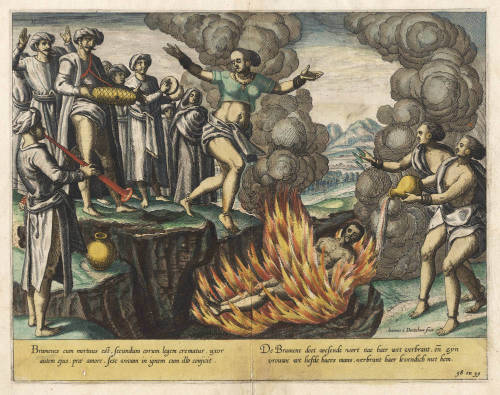 Ioannes à Doetechum fecit.
Bramenes cum mortuus est, secundum eorum legem crematur, uxor
autem ejus, præ amore, sese unâ in ignem cum illo conjicit.
De Bramene doot wesende wort nae haer wet verbrant, en zyn
vrouwe wt liefde haers mans, verbrant haer levendich met hem.
58 en 59